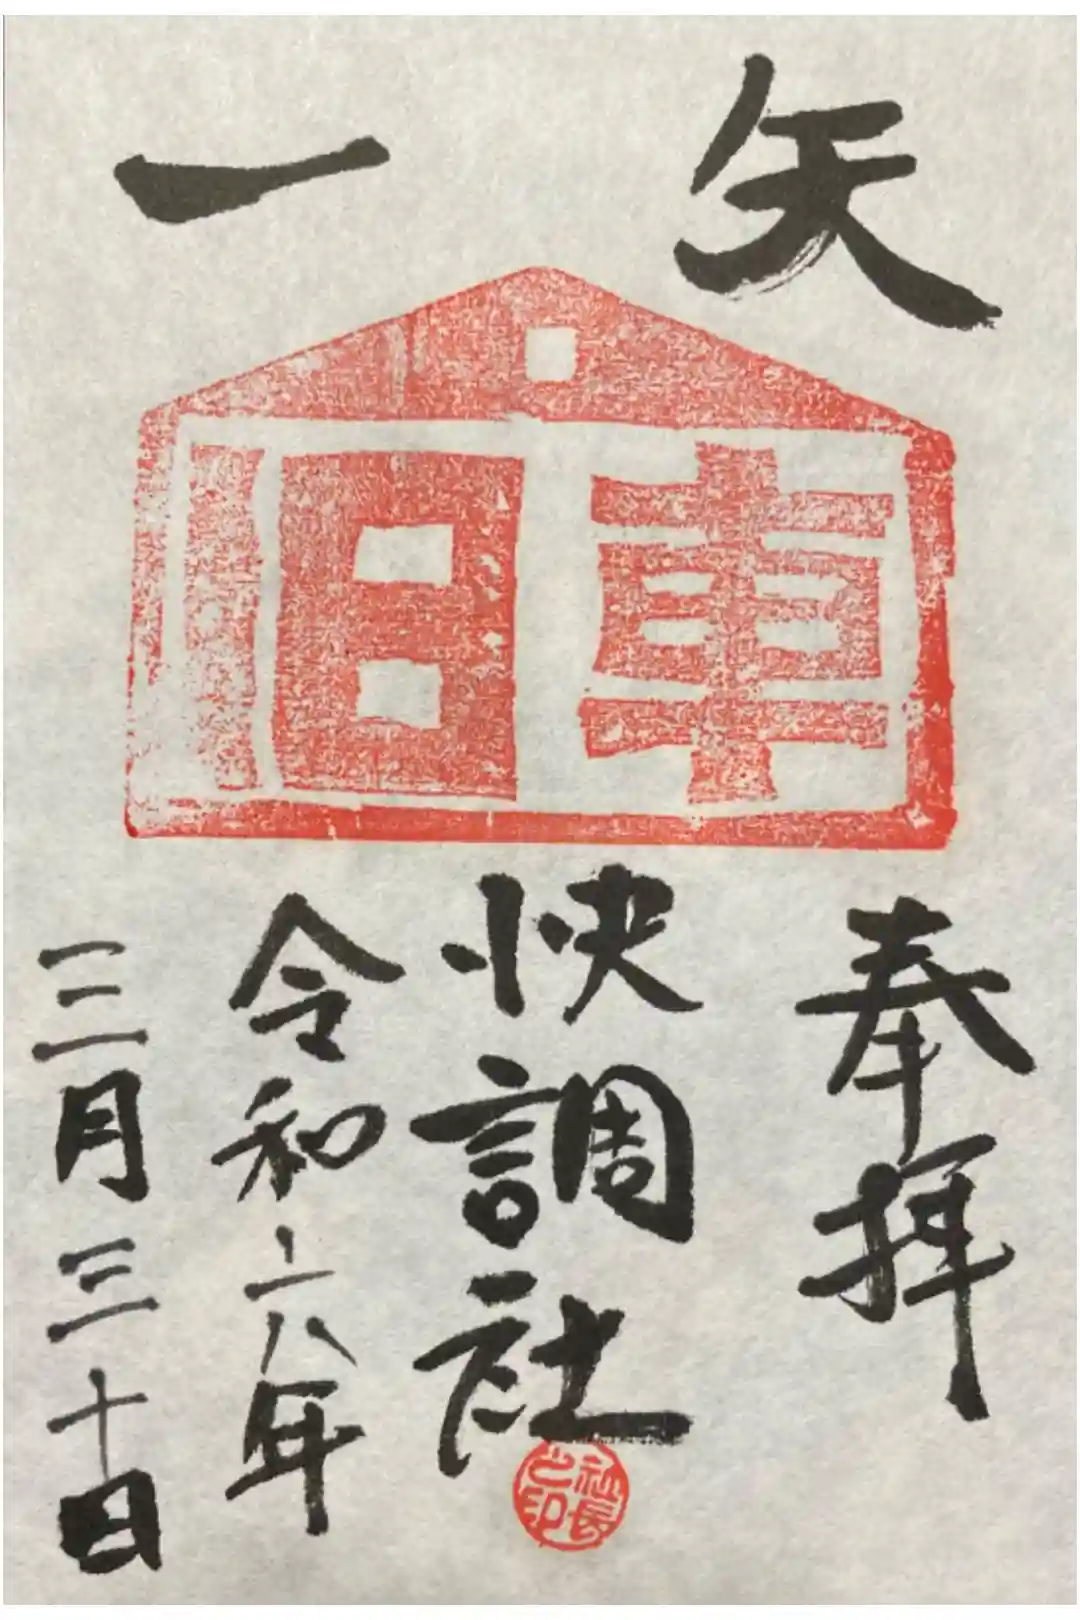 一矢
旧車
奉拝
快調社
社長之印
令和六年
三月三十日